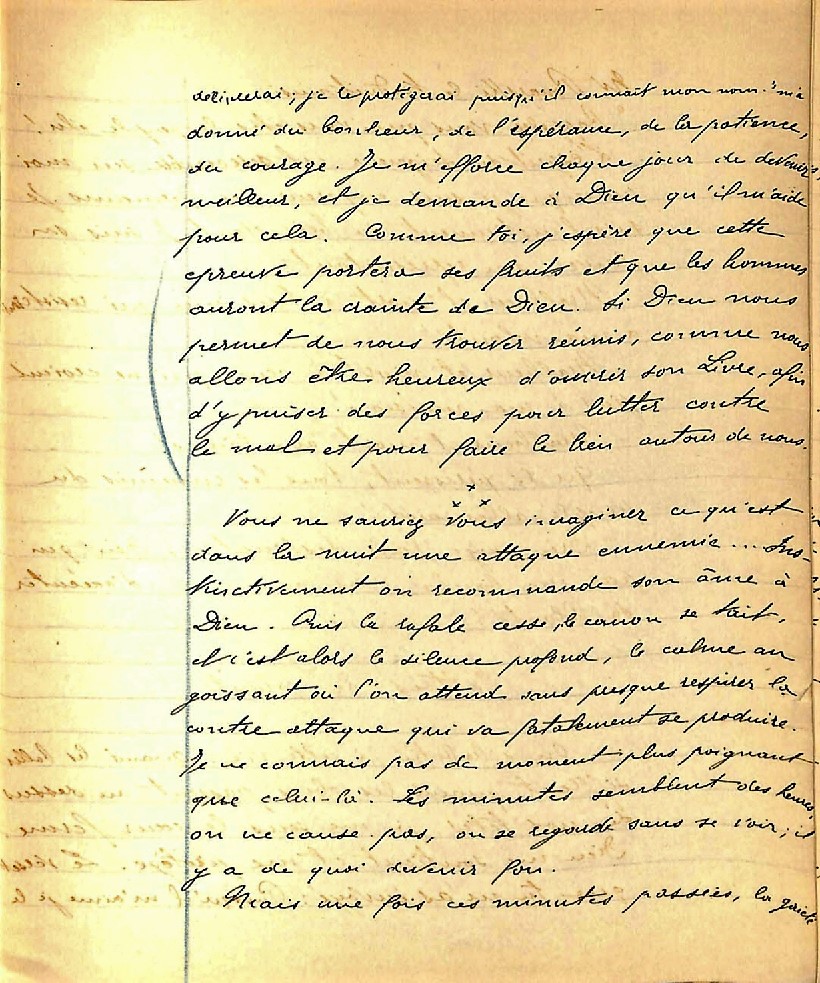 délivrerai ; je le protégerai puisqu'il connaît mon nom." m'a
donné du bonheur, de l'espérance, de la patience,
du courage. Je m'efforce chaque jour de devenir
meilleur, et je demande à Dieu qu'il m'aide
pour cela. Comme toi, j'espère que cette
épreuve portera ses fruits et que les hommes
auront la crainte de Dieu. Si Dieu nous
permet de nous trouver réunis, comme nous
allons être heureux d'ouvrir son Livre, afin
d'y puiser des forces pour lutter contre
le mal et pour faire le bien autour de nous.
x
x x
Vous ne sauriez vous imaginer ce qu'est
dans la nuit une attaque ennemie ... Ins-
tinctivement on recommande son âme à
Dieu. Puis la rafale cesse, le canon se tait,
et c'est alors le silence profond, le calme an
goissant où l'on attend sans presque respirer la
contre attaque qui va fatalement se produire.
Je ne connais pas de moment plus poignant
que celui-là. Les minutes semblent des heures,
on ne cause pas, on se regarde sans se voir ; il
y a de quoi devenir fou.
Mais une fois ces minutes passées, la gaieté